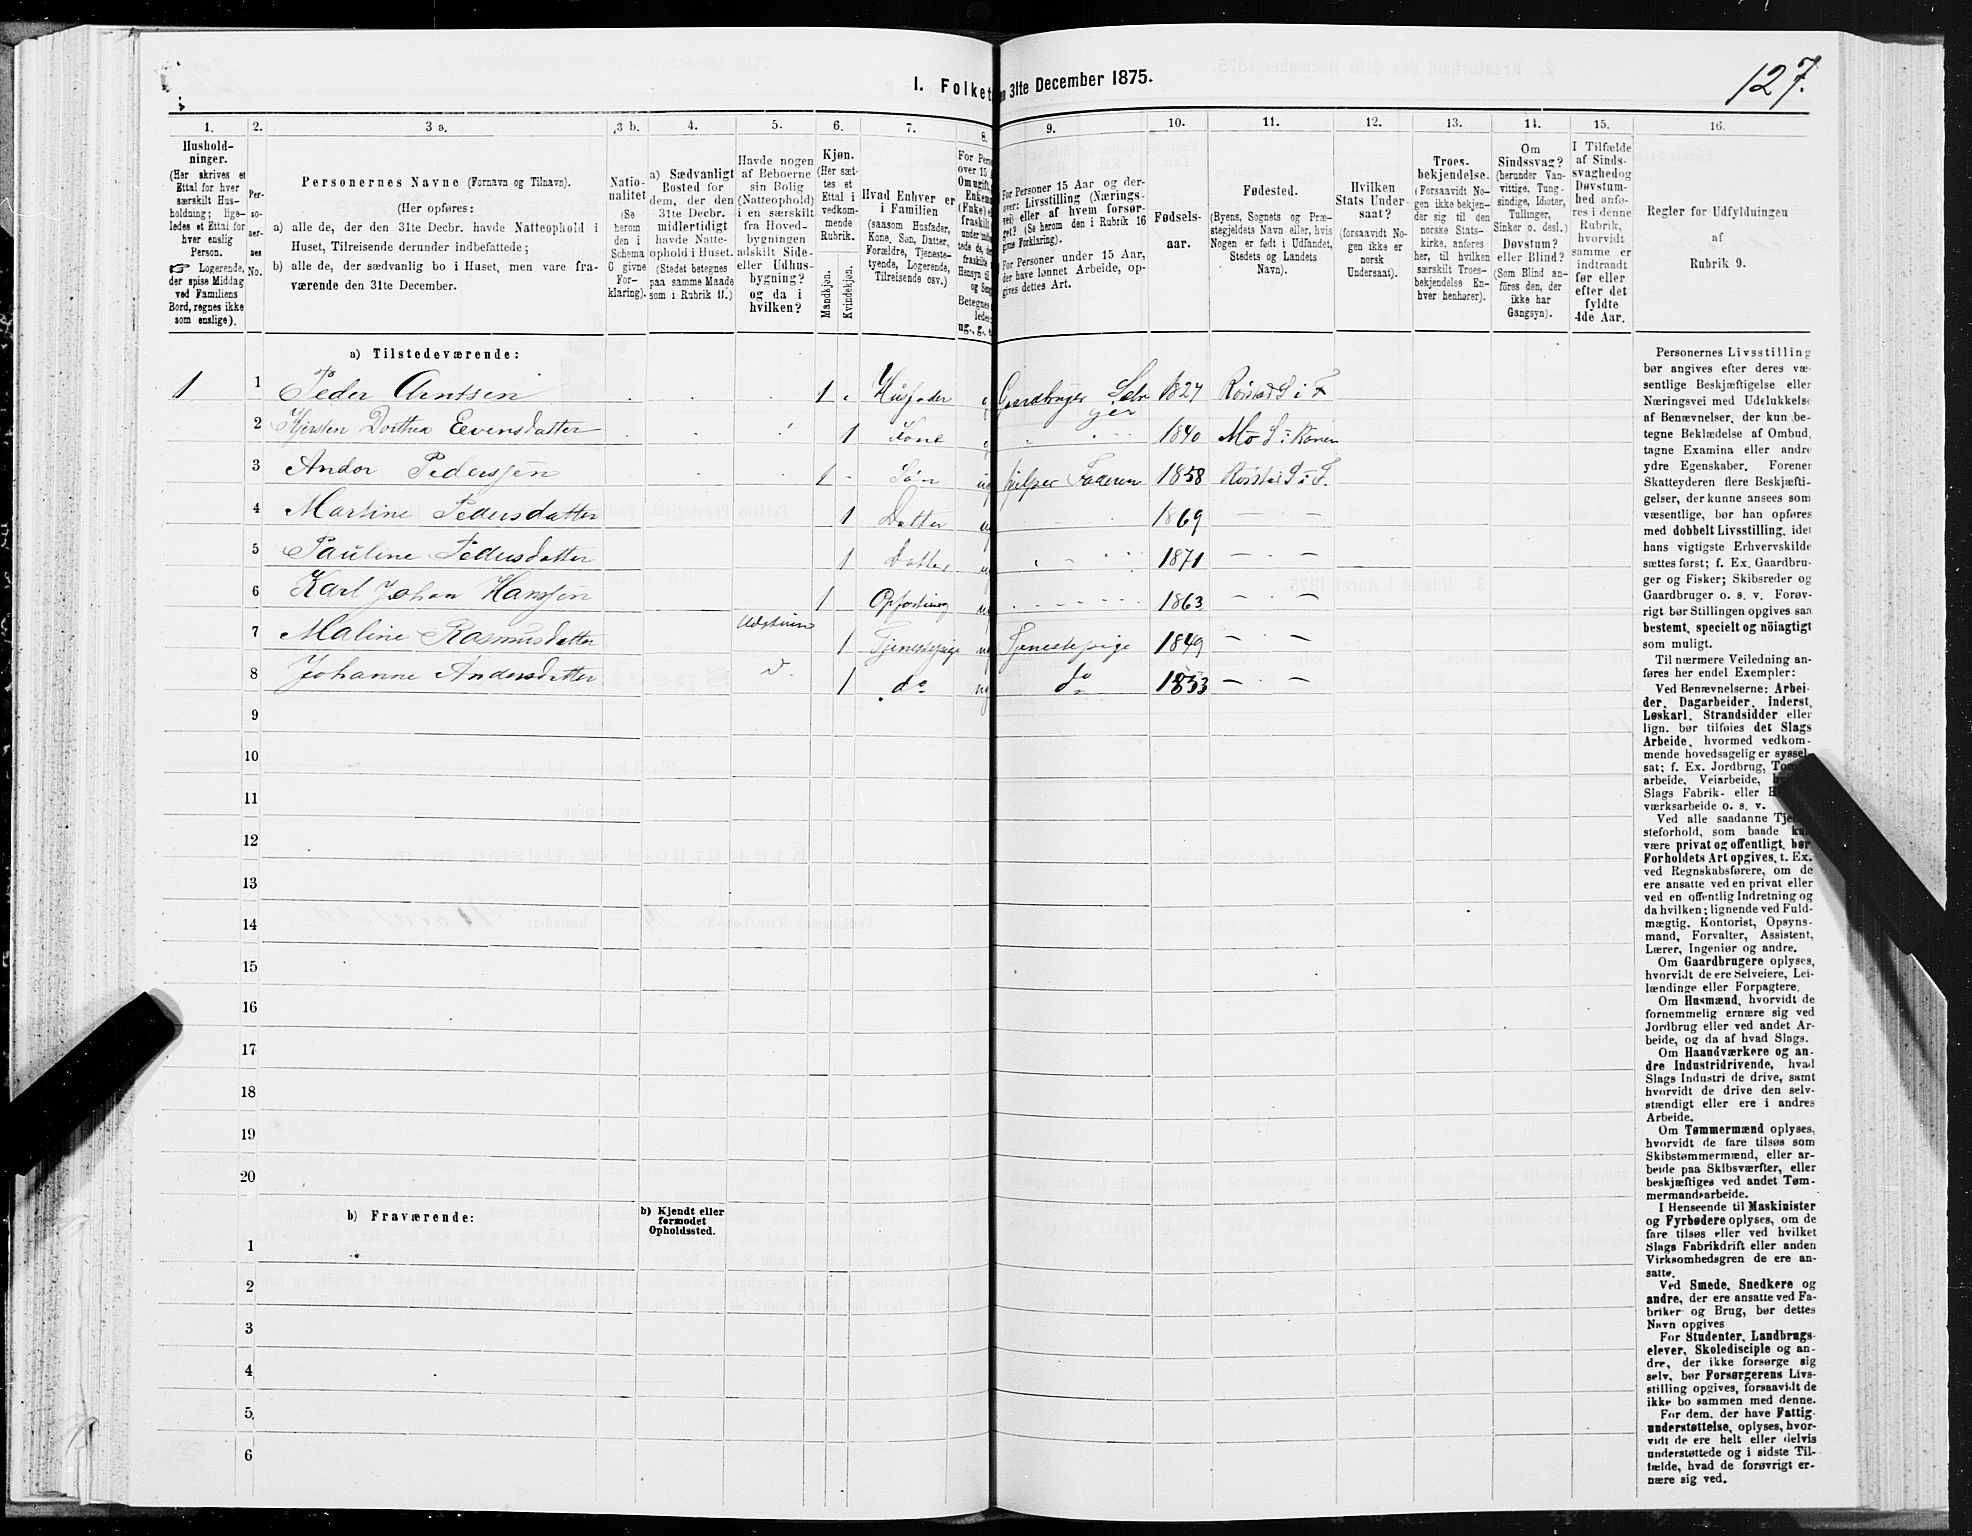 127.
I. Folket
en 31te December 1875.
1.
2.
3 a.
3 b.
4.
5.
6.
7.
8.
9.
10.
11.
12.
13.
14.
15.
16.
Hushold-
ninger.
(Her skrives et
Ettal for hver
særskilt Hus-
holdning; lige-
ledes et Ettal for
hver enslig
Person.
☞ Logerende,
der spise Middag
ved Familiens
Bord, regnes ikke
som enslige).
Per-
so-
ner-
nes
No.
Personernes Navne (Fornavn og Tilnavn).
(Her opføres:
a) alle de, der den 31te Decbr. havde Natteophold i
Huset, Tilreisende derunder indbefattede;
b) alle de, der sædvanlig bo i Huset, men vare fra-
værende den 31te December.
Natio-
nalitet
(Se
herom
den i
Schema
G givne
For-
klaring).
a) Sædvanligt
Bosted for
dem, der den
31te Decbr.
midlertidigt
havde Natte-
ophold i Huset.
(Stedet betegnes
paa samme Maade
som i Rubrik 11.)
Havde nogen
af Beboerne
sin Bolig
(Natteophold)
i en særskilt
fra Hoved-
bygningen
adskilt Side-
eller Udhus-
bygning?
og da i
hvilken?
Kjøn.
(Her sæt-
tes et
Ettal i
vedkom-
mende
Rubrik.
Mandkjøn.
Kvindekjøn.
Hvad Enhver er
i Familien
(saasom Husfader,
Kone, Søn, Datter,
Forældre, Tjeneste-
tyende, Logerende,
Tilreisende osv.)
For Perso
over 15 A
Om ugift,
Enkem
(Enke) e
fraskilt
ug., g., e
For Personer 15 Aar og der-
over: Livsstilling (Nærings-
vei) eller af hvem forsør-
get? (Se herom den i Rubrik 16
givne Forklaring).
For Personer under 15 Aar,
der have lønnet Arbeide, op-
gives dettes Art.
Fødsels-
aar.
Fødested.
(Byens, Sognets og Præ-
stegjeldets Navn eller, hvis
Nogen er født i Udlandet,
Stedets og Landets
Navn).
Hvilken
Stats Under-
saat?
(forsaavidt No-
gen ikke er
norsk
Undersaat).
Troes-
bekjendelse.
(Forsaavidt No-
gen ikke bekjen-
der sig til den
norske Stats-
kirke, anføres
her, til hvilken
særskilt Troes-
bekjendelse En-
hver henhører).
Om
Sindssvag?
(herunder Van-
vittige, Tung-
sindige, Idioter,
Tullinger,
Sinker o. desl.)
Døvstum?
eller Blind?
(Som Blind an-
føres den, der
ikke har
Gangsyn).
I Tilfælde
af Sinds-
svaghed og
Døvstum-
hed anfø-
res i denne
Rubrik,
hvorvidt
samme er
indtraadt
før eller
efter det
fyldte
4de Aar.
Regler for Udfyldningen
af
Rubrik 9.
a) Tilstedeværende:
1 1 Peder Arntsen 1 Husfader Gaardbruger Selv
eier 1827 Rörstad S i F
2 Kjersten Dorthea Eevensdatter 1 Kone 1840 Mo S i Ranen
3 Andor Pederssen 1 Sön ug hjelper Faderen 1858 Rörstad S i F.
4 Martine Pedersdatter 1 Datter ug 1869 — —
5 Pauline Pedersdatter 1 Datter ug 1871 — —
6 Karl Johan Hanssen 1 ug 1863
7 Maline Rasmusdatter 1 Tjenestepige ug Tjenestepige 1849 — —
8 Johanne Andersdatter 1 do ug do 1853 — —
9
10
11
12
13
14
15
16
17
18
19
20
b) Fraværende:
b) Kjendt eller
formodet
Opholdssted.
1
2
3
4
5
6
Personernes Livsstilling
bør angives efter deres væ-
sentlige Beskjæftigelse eller
Næringsvei med Udelukkelse
af Benævnelser, der kun be-
tegne Beklædelse af Ombud,
tagne Examina eller andre
ydre Egenskaber. Forener
Skatteyderen flere Beskjæfti-
gelser, der kunne ansees som
væsentlige, bør han opføres
med dobbelt Livsstilling, idet
hans vigtigste Erhvervskilde
sættes først; f. Ex. Gaardbru-
ger og Fisker; Skibsreder og
Gaardbruger o. s. v. Forøv-
rigt bør Stillingen opgives saa
bestemt, specielt og nöiagtigt
som muligt.
Til nærmere Veiledning an-
føres her endel Exempler:
Ved Benævnelserne: Arbei-
der, Dagarbeider, Inderst,
Løskarl, Strandsidder eller
lign. bør tilføies det Slags
Arbeide, hvormed vedkom-
mende hovedsagelig er syssel-
sat; f. Ex. Jordbrug,
arbeide, Veiarbeide,
Slags Fabrik- eller
værksarbeide o. s. v.
Ved alle saadanne Tjene-
steforhold, som baade kan
være privat og offentligt, bør
Forholdets Art opgives, t. Ex.
ved Regnskabsførere, om de
ere ansatte ved en privat eller
ved en offentlig Indretning og
da hvilken; lignende ved Fuld-
mægtig, Kontorist, Opsyns-
mand, Forvalter, Assistent,
Lærer, Ingeniør og andre.
Om Gaardbrugere oplyses,
hvorvidt de ere Selveiere, Lei-
lændinge eller Forpagtere.
Om Husmænd, hvorvidt de
fornemmelig ernære sig ved
Jordbrug eller ved andet Ar-
beide, og da af hvad Slags.
Om Haandværkere og an-
dre Industridrivende, hvad
Slags Industri de drive, samt
hvorvidt de drive den selv-
stændigt eller ere i andres
Arbeide.
Om Tømmermænd oplyses,
hvorvidt de fare tilsøs som
Skibstømmermænd, eller ar-
beide paa Skibsværfter, eller
beskjæftiges ved andet Tøm-
mermandsarbeide.
I Henseende til Maskinister
og Fyrbødere oplyses, om de
fare tilsøs eller ved hvilket
Slags Fabrikdrift eller anden
Virksomhedsgren de ere an-
satte.
Ved Smede, Snedkere og
andre, der ere ansatte ved Fa-
briker og Brug, bør dettes
Navn opgives
For Studenter, Landbrugs-
elever, Skoledisciple og an-
dre, der ikke forsørge sig
selv, bør Forsørgerens Livs-
stilling opgives, forsaavidt de
ikke bo sammen med denne.
For dem, der have Fattig-
understøttelse, oplyses, hvor-
vidt de ere helt eller delvis
understøttede og i sidste Til-
fælde, hvad de forøvrigt er-
nære sig ved.